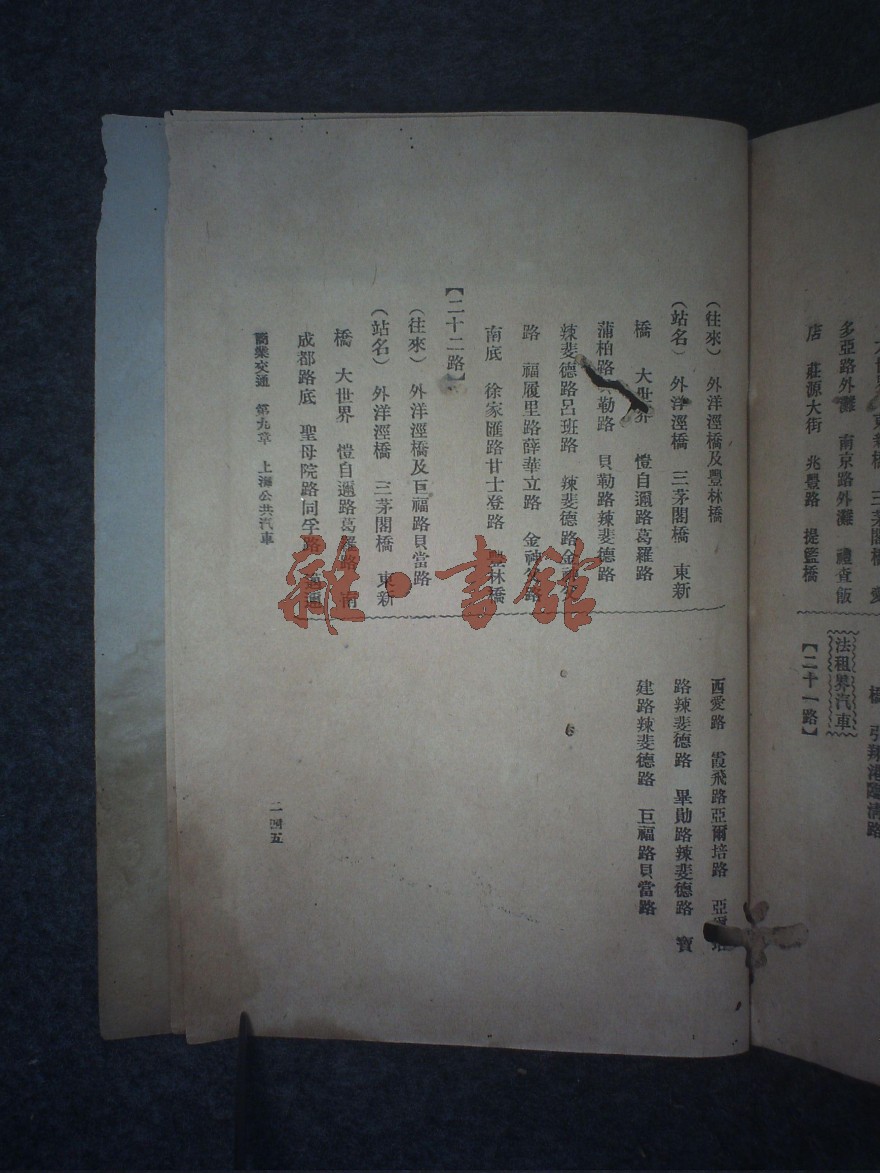 東新橋 三茅閣橋 愛
多亞路外灘 南京路外灘 禮查飯
店 莊源大街 兆豐路 提籃橋
橋 引翔港
法租界汽車
【二十一路】
(往來) 外洋涇橋及豐林橋
(站名) 外洋涇橋 三茅閣橋 東新
橋 大世界 愷自邇路葛羅路
蒲柏路貝勒路 貝勒路辣斐德路
辣斐德路呂班路 辣斐德路金神父
路 福履里路薛華立路 金神父路
南底 徐家匯路甘士登路 豐林橋
【二十二路】
(往來) 外洋涇橋及巨福路貝當路
(站名) 外洋涇橋 三茅閣橋 東新
橋 大世界 愷自邇路葛羅路 南
成都路底 聖母院路同孚路 邁
西愛路 霞飛路亞爾培路 亞爾培
路辣斐德路 畢勛路辣斐德路 寶
建路辣斐德路 巨福路貝當路
商業交通 第九章 上海公共汽車
二四五
雜·書館